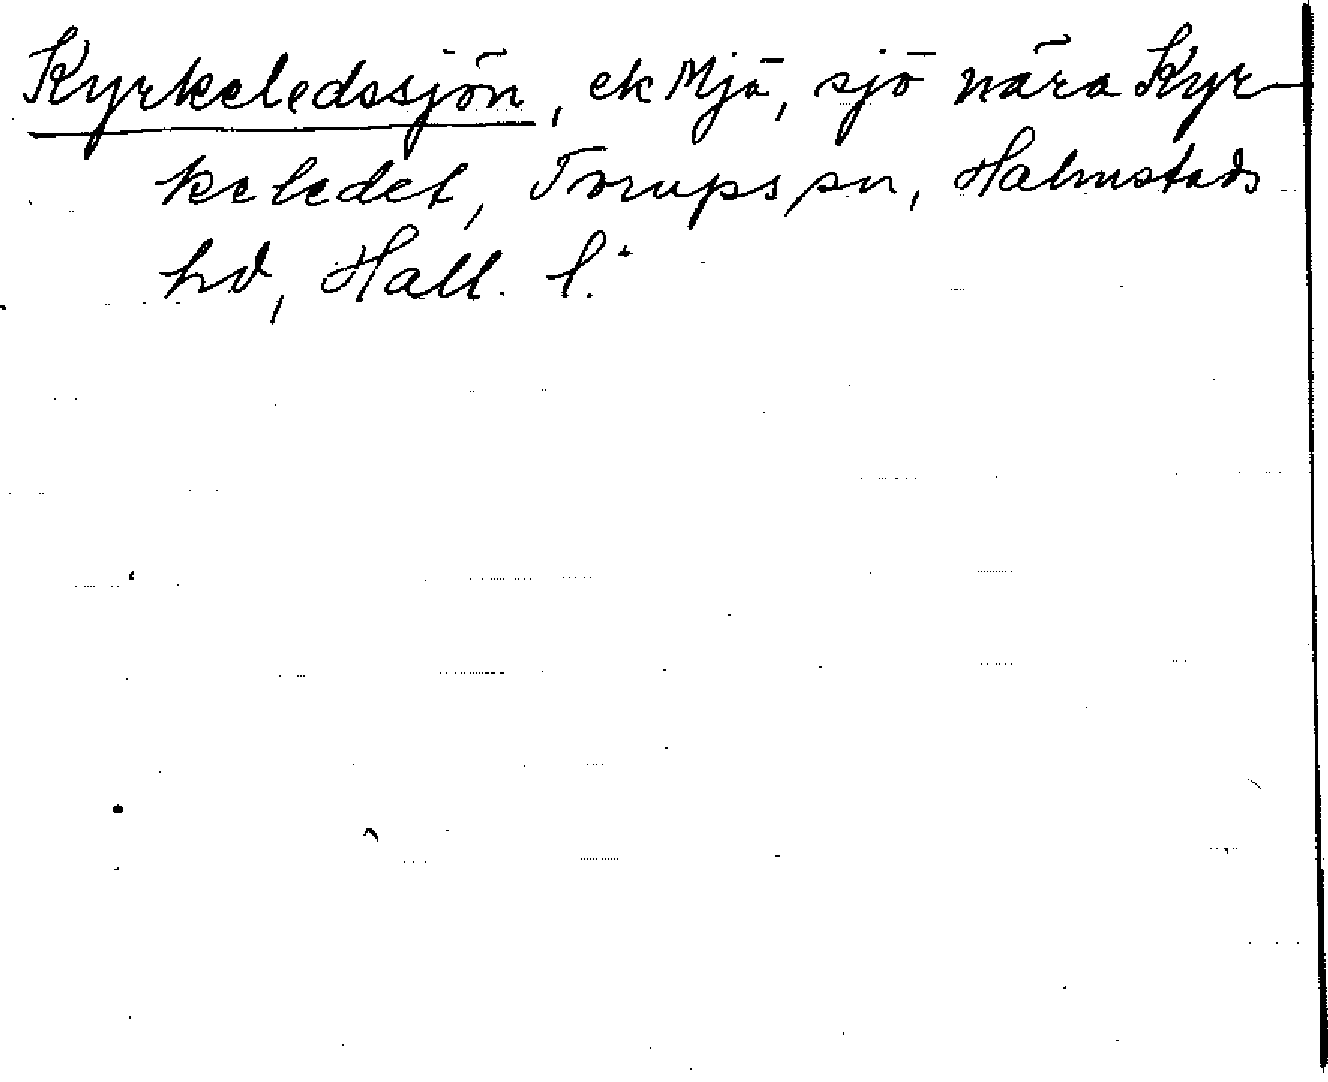 Kyrkeledssjön, ek Mjä, sjö nära Kyr-
keledet, Torups sn, Halmstads
hd, Hall. l.